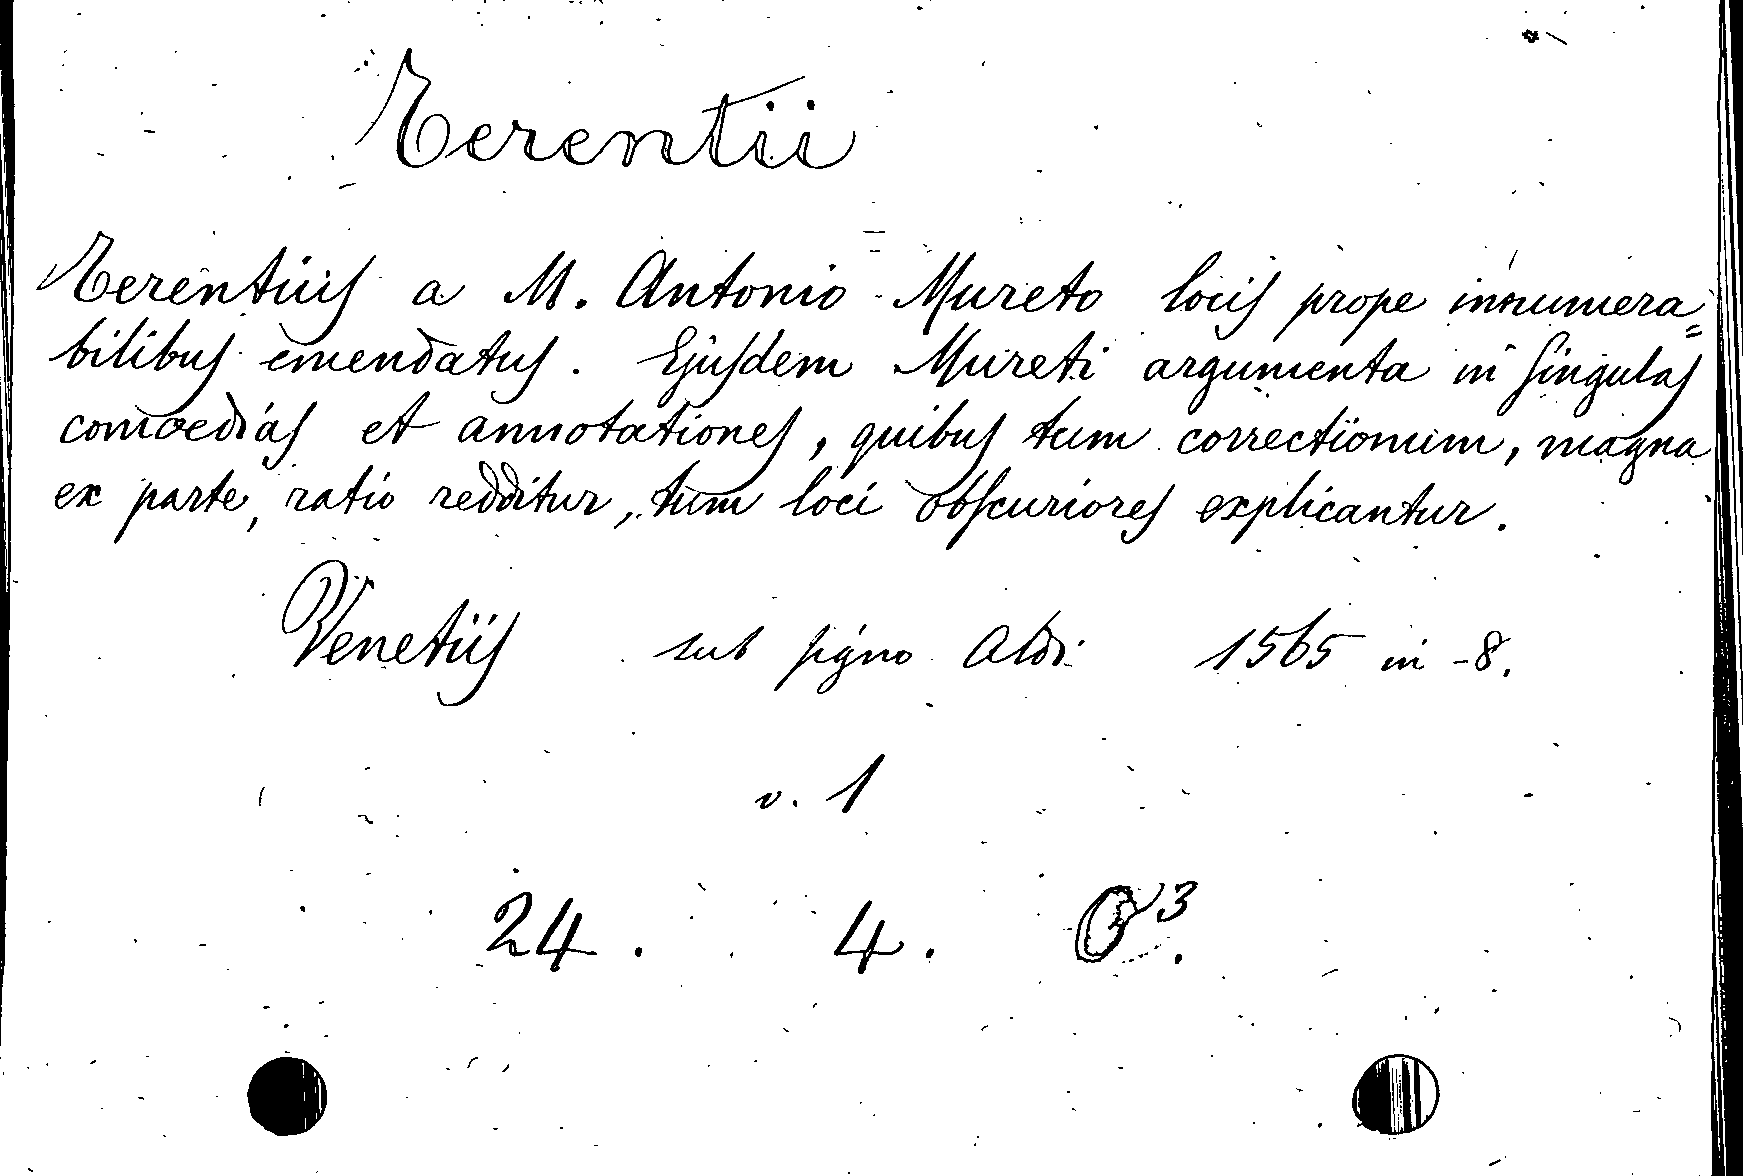 Terentii
Terentius a M. Antonio Mureto locis prope innumera=
bilibus emendatus. Ejusdem Mureti argumenta in singulas
comoedias et annotationes, quibus tum correctionum, magna
ex parte, ratio redditur, tum loci obscuriores explicantur.
Venetiis sub signo Aldi 1565 in-8.
v. 1
24. 4. O³.